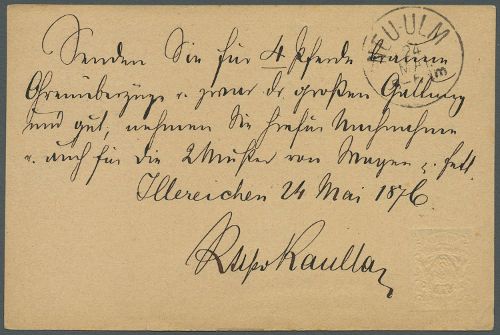 Senden Sie für 4 Pferde
Ohrenüberzüge u. zwar d. großen Gattung
und gut, nehmen Sie hiefür Nachnahme
u. auch für die 2 Muster von Wagen u. fett.
Illereichen 24 Mai 1876
Kaulla
NEU-ULM
24
MAI